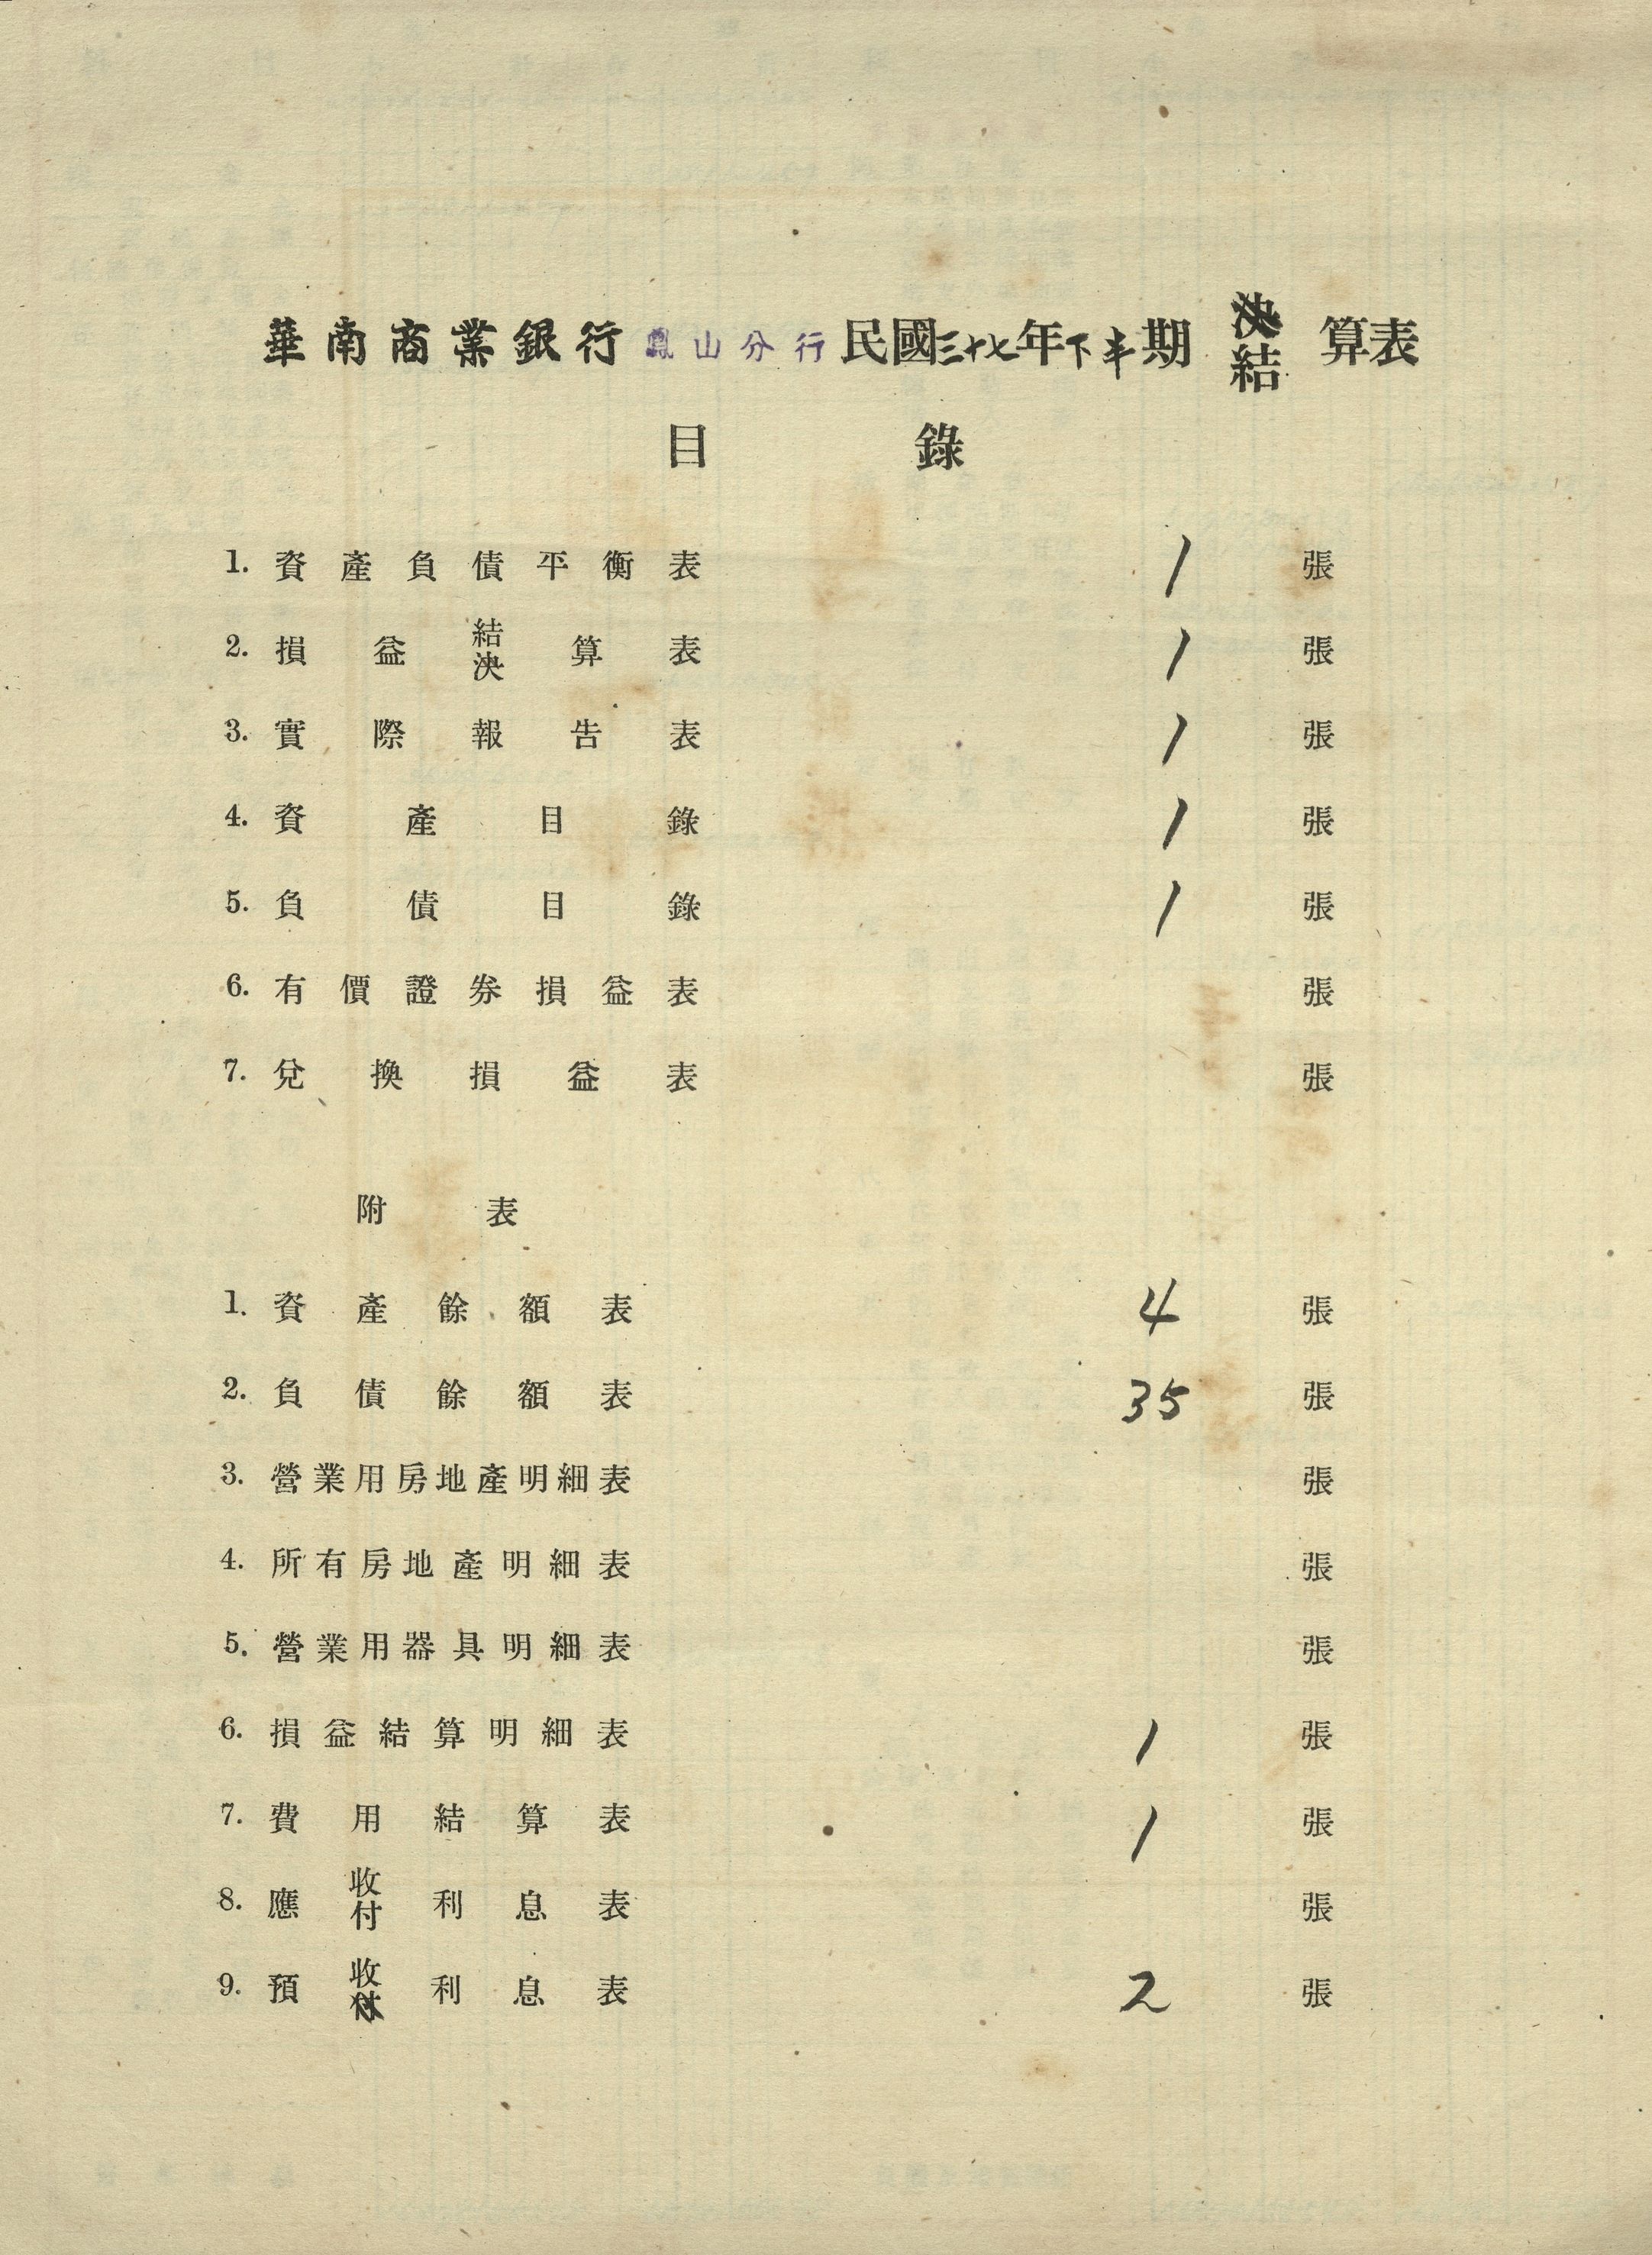 華南商業銀行鳳山分行民國三十七年下半期決結算表
目錄
1. 資產負債平衡表 1 張
2. 損益結決算表 1 張
3. 實際報告表 1 張
4. 資產目錄 1 張
5. 負債目錄 1 張
6. 有價證券損益表 張
7. 兌換損益表 張
附表
1. 資產餘額表 4 張
2. 負債餘額表 35 張
3. 營業用房地產明細表 張
4. 所有房地產明細表 張
5. 營業用器具明細表 張
6. 損益結算明細表 1 張
7. 費用結算表 1 張
8. 應收付利息表 張
9. 預收付利息表 2 張